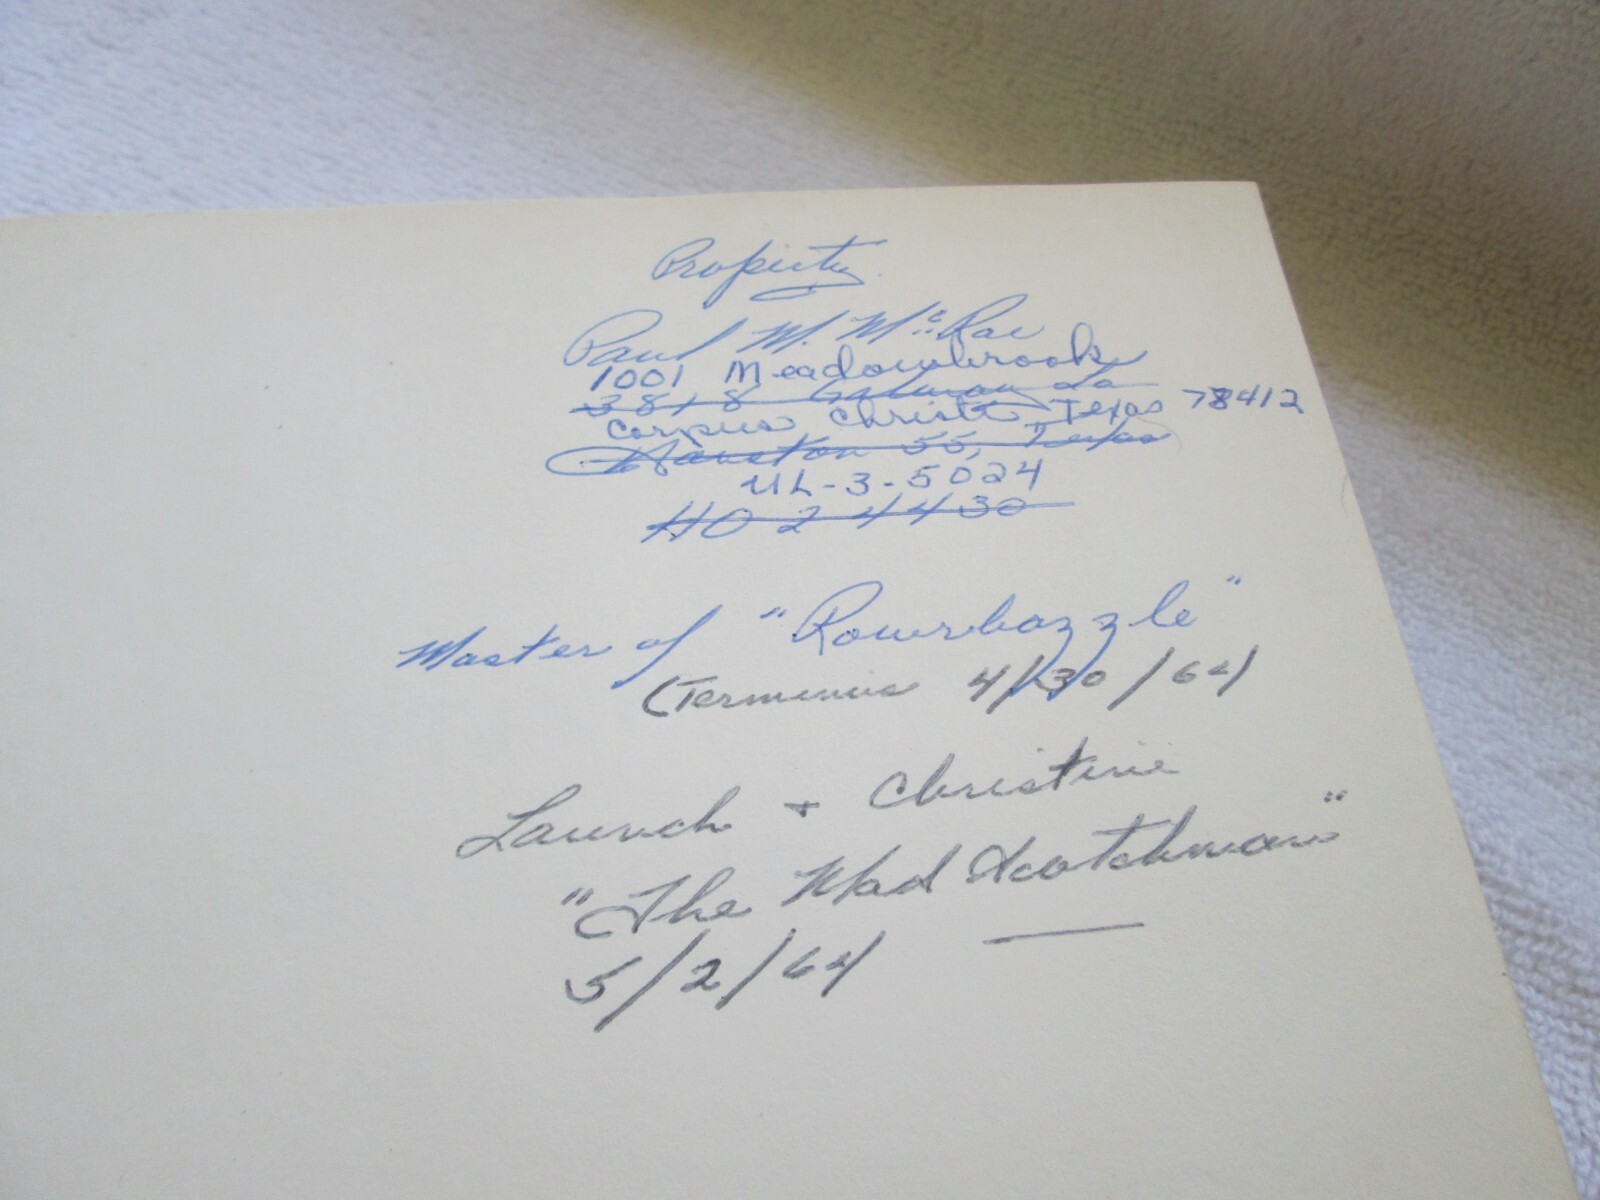 Property
Paul M. McRae
1001 Meadowbrook
3818 La
Corpus Christi, Texas 78412
Houston 55, Texas
UL-3-5024
HO 2 4430
Master of "Rowrbazzle"
(Terminus 4/30/64)
Launch + Christine
"The Mad Scotchman"
5/2/64